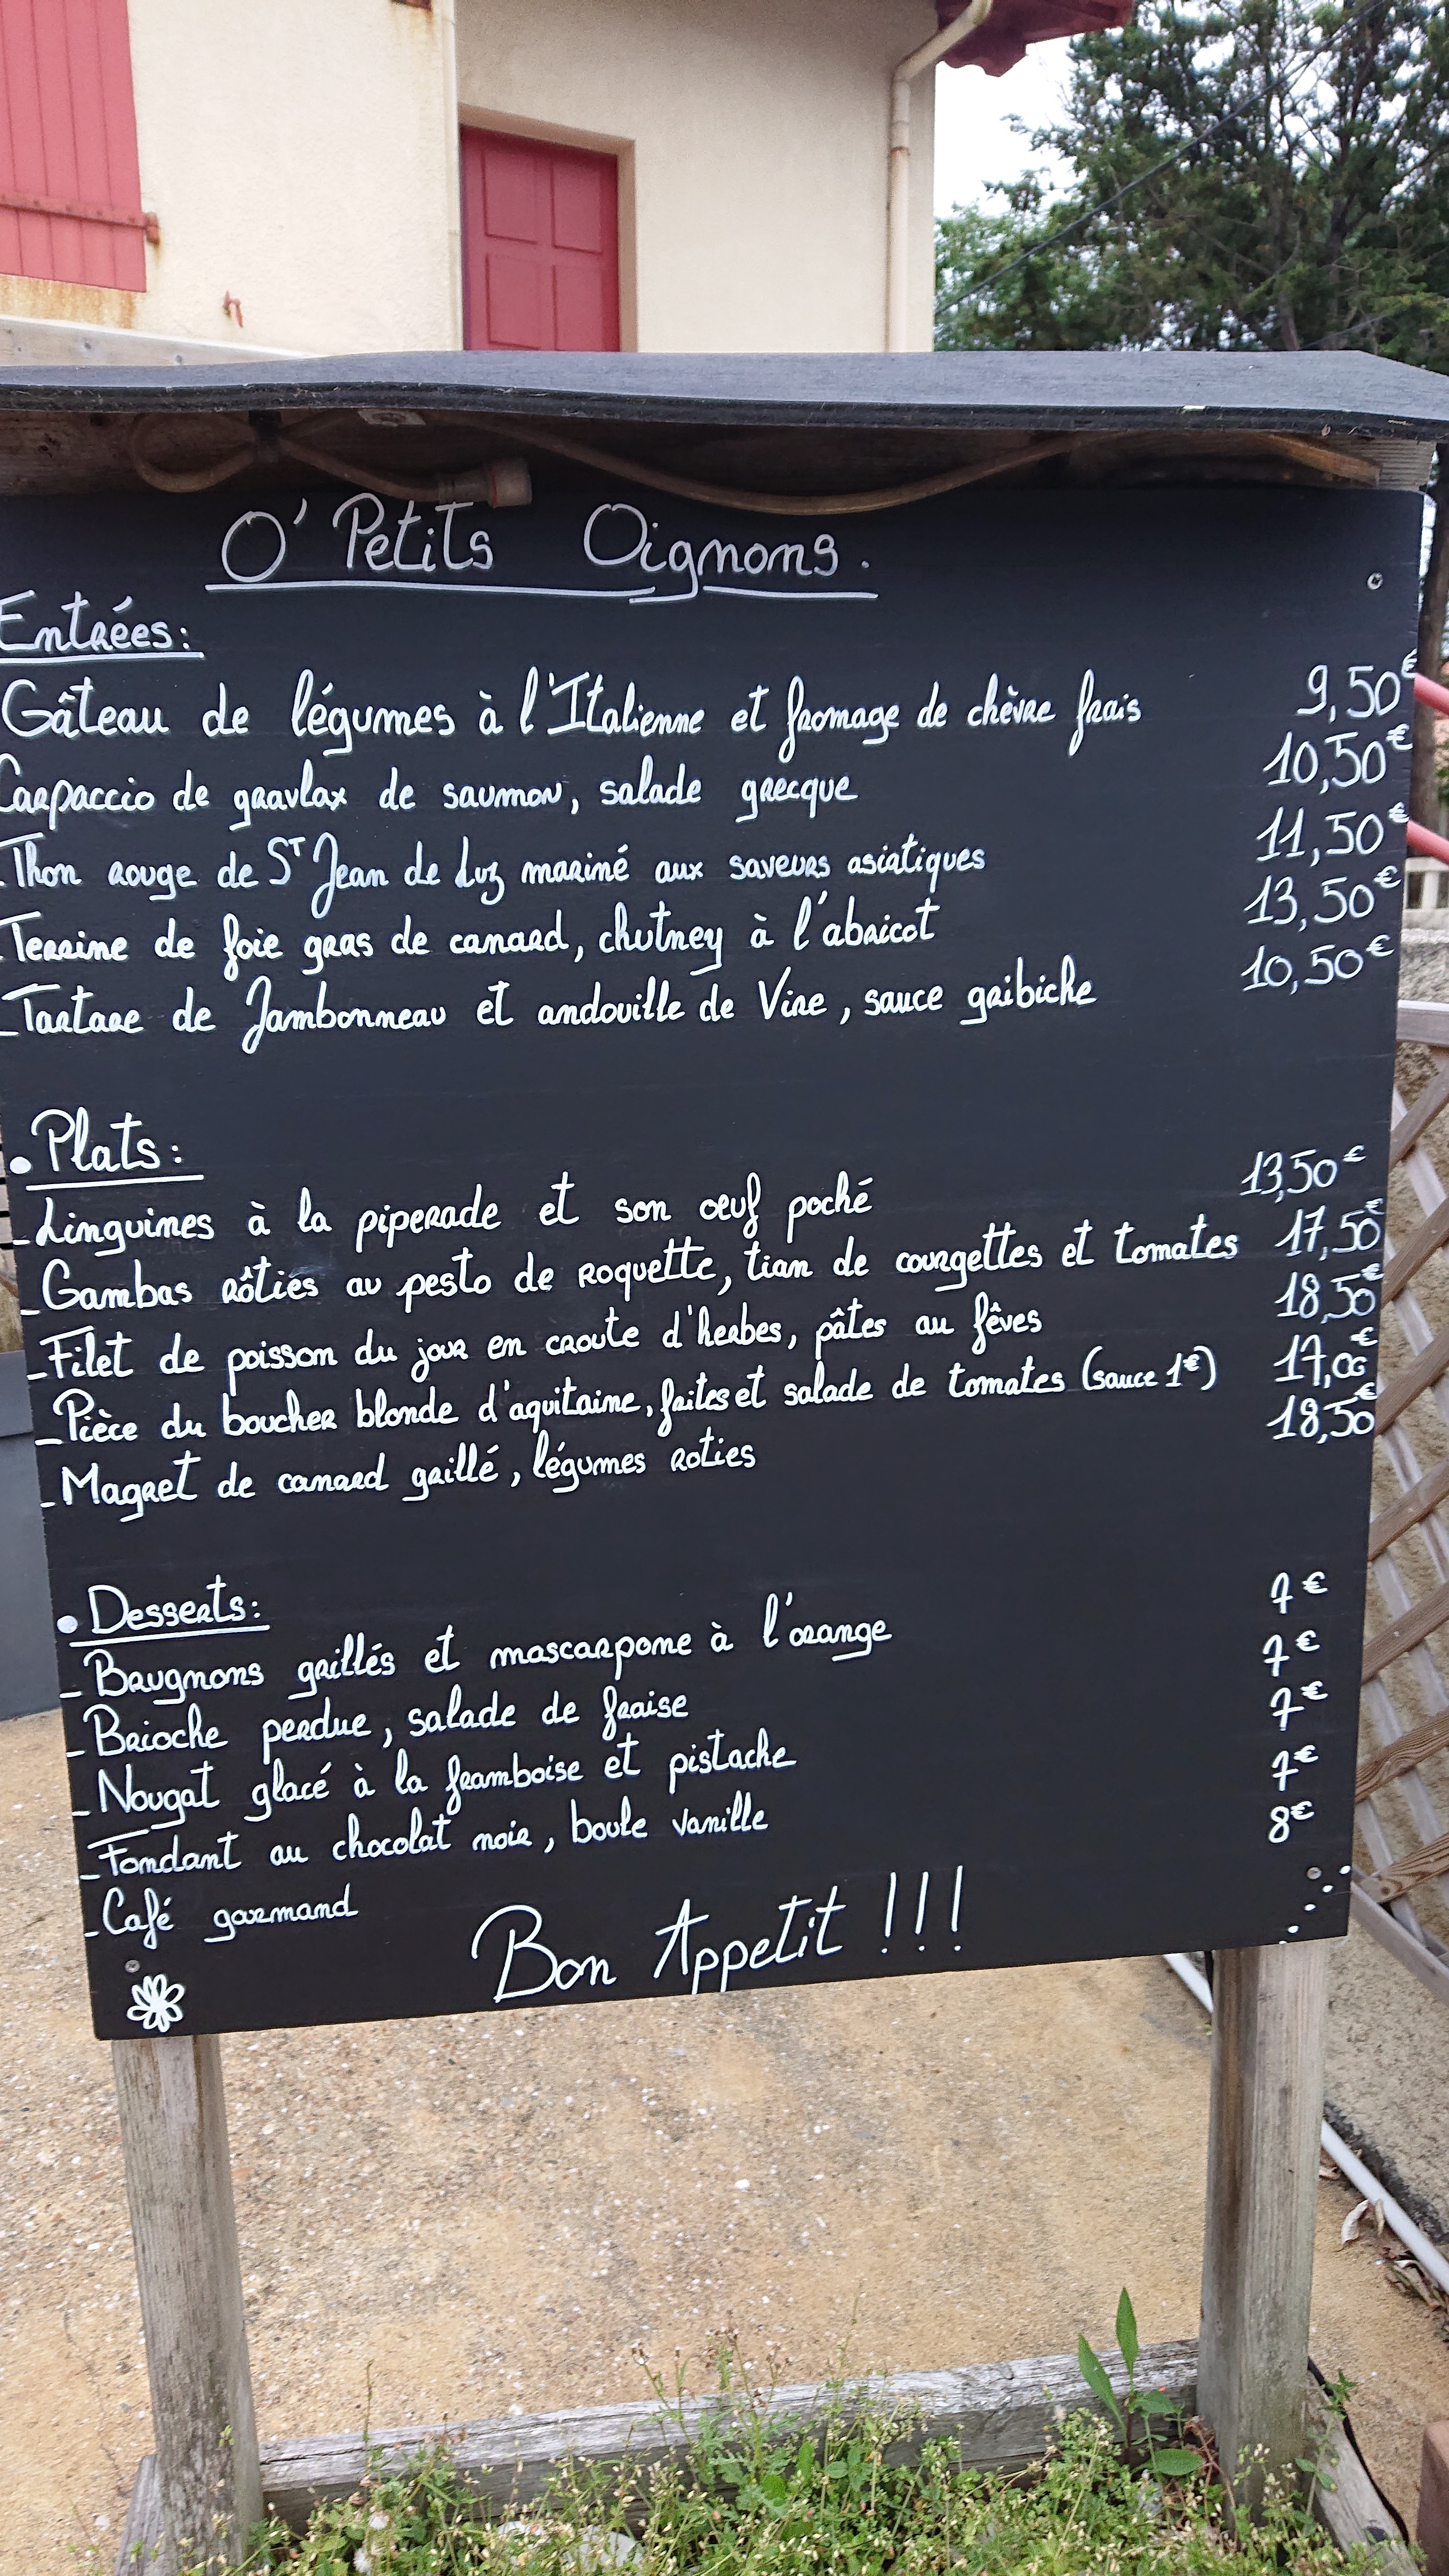 O' Petits Oignons.
Entrées:
Gâteau de légumes à l'Italienne et fromage de chèvre frais 9,50€
Carpaccio de gravlax de saumon, salade grecque 10,50€
Thon rouge de ST Jean de Luz mariné aux saveurs asiatiques 11,50€
Terrine de foie gras de canard, chutney à l'abricot 13,50€
-Tartare de Jambonneau et andouille de Vire, sauce gribiche 10,50€
• Plats:
-Linguines à la piperade et son œuf poché 13,50€
-Gambas rôties au pesto de roquette, tian de courgettes et tomates 17,50€
-Filet de poisson du jour en croute d'herbes, pâtes au fêves 18,50€
-Pièce du boucher blonde d'aquitaine, frites et salade de tomates (sauce 1€) 17,00€
-Magret de canard grillé, légumes roties 18,50€
• Desserts:
-Brugnons grillés et mascarpone à l'orange 7€
-Brioche perdue, salade de fraise 7€
-Nougat glacé à la framboise et pistache 7€
-Fondant au chocolat noir, boule vanille 7€
-Café gourmand 8€
Bon Appetit !!!